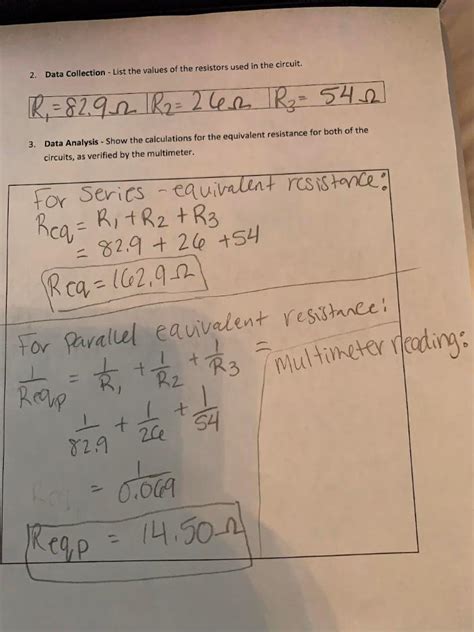 2. Data Collection - List the values of the resistors used in the circuit.
R₁=82.9Ω R₂= 26Ω R₃= 54Ω
3. Data Analysis - Show the calculations for the equivalent resistance for both of the
circuits, as verified by the multimeter.
For Series - equivalent resistance:
Req = R₁ + R₂ + R₃
= 82.9 + 26 + 54
Req = 162.9 Ω
For Parallel equivalent resistance:
1/Reqp = 1/R₁ + 1/R₂ + 1/R₃ =
Multimeter reading:
1/82.9 + 1/26 + 1/54
= 1/0.069
Reqp = 14.50 Ω